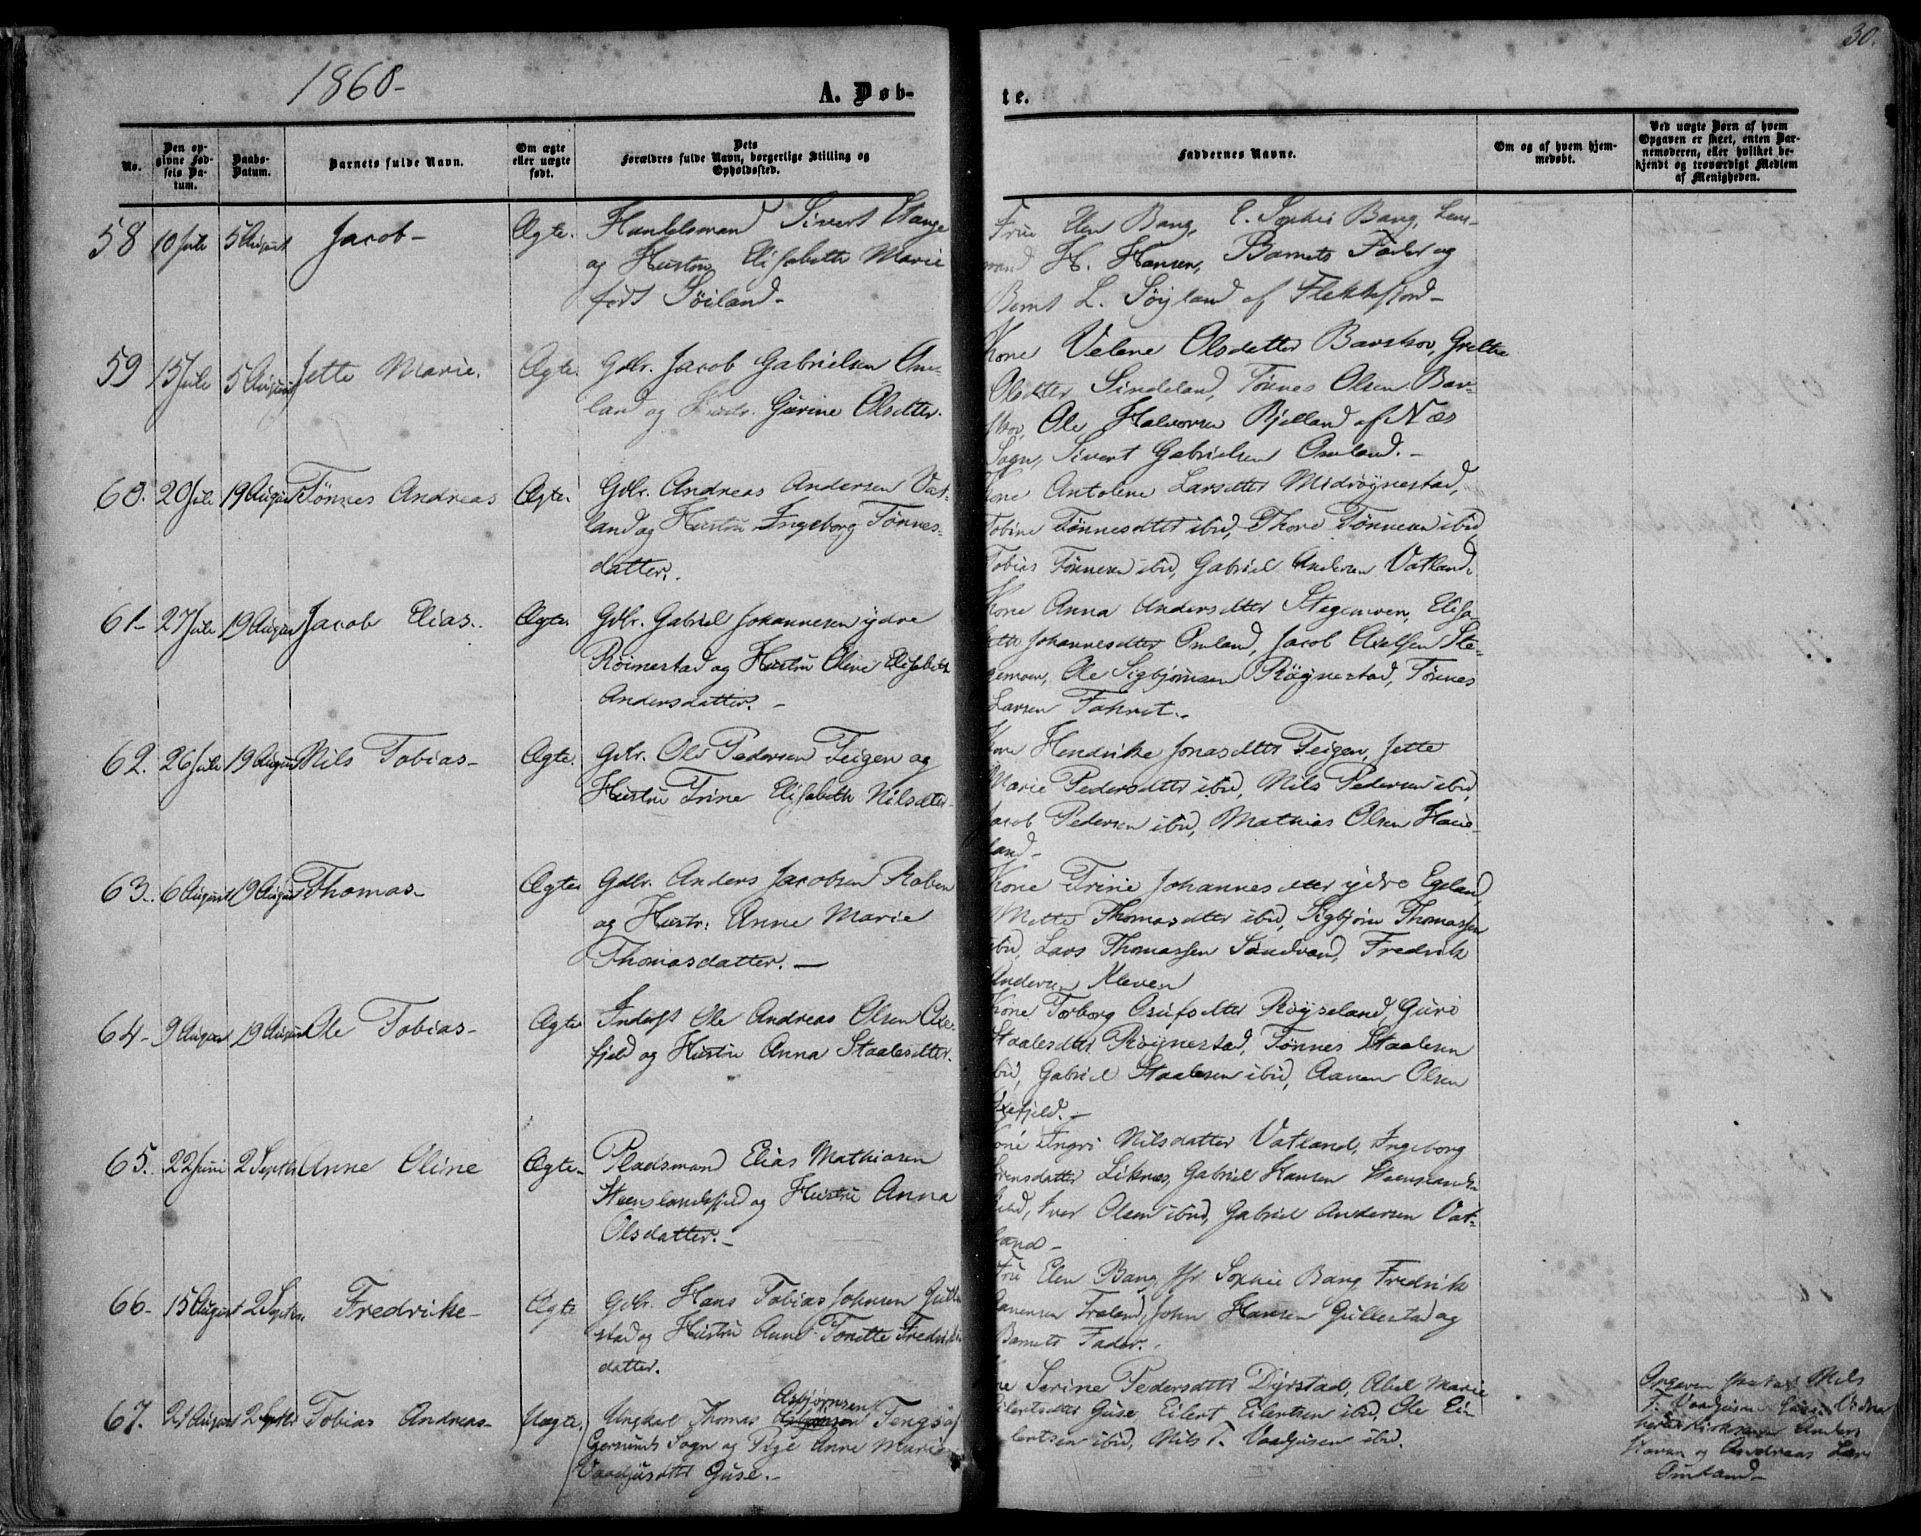 30.
1860-
A. Døb-
te.
No.
Den op-
givne Fød-
sels Da-
tum.
Daabs-
Datum.
Barnets fulde Navn.
Om ægte
eller uægte
født.
Dets
Forældres fulde Navn, borgerlige Stilling og
Opholdssted.
Faddernes Navne.
Om og af hvem hjem-
medøbt.
Ved uægte Børn af hvem
Opgaven er skeet, enten Bar-
nemoderen, eller hvilket be-
kjendt og troværdigt Medlem
af Menigheden.
58 10 Juli 5 August Jacob- Ægte. Handelsmand Sivert Stange
og Hustru Elisabeth Marie
født Söiland-
Frue Elen Bang, E. Sophie Bang, Lens-
mand H. Hansen, Barnets Fader og
Bernt L. Søyland af Flekkefjord-
59 15 Juli 5 August Jette Marie. Ægte. Gdbr. Jacob Gabrielsen Om-
land og Hustr. Gurine Olsdtter.
Kone Velene Olsdatter Barskov, Grethe
Olsdtter Sindeland, Tønnes Olsen Bar-
skov, Ole Halvorsen Bjelland af Næs
Sogn, Sivert Gabrielsen Omland.-
60. 20 Juli 19 August Tønnes Andreas Ægte. Gdbr. Andreas Andersen Vat-
land og Hustru Ingeborg Tønnes-
datter.
Kone Antolene Larsdtter Midrøynestad,
Tobine Tønnesdtter ibid, Thore Tønnesen ibid,
Tobias Tønnesen ibid, Gabriel Andersen Vatland.
61- 27 Juli 19 August Jacob Elias. Ægte. Gdbr. Gabriel Johannesen ydre
Röinestad og Hustru Oline Elisabeth
Andersdatter.-
Kone Anna Andersdtter Stegemoen, Elisa-
beth Johannesdtter Omland, Jacob Axelsen Ste-
gemoen, Ole Sigbjørnsen Røynestad, Tønnes
Larsen Fahret.-
62. 26 Juli 19 August Nils Tobias- Ægte. Gdbr. Ole Pedersen Teigen og
Hustru Trine Elisabeth Nilsdtter-
Kone Hendrikke Jonasdtter Teigen, Jette
Marie Pedersdtter ibid, Nils Pedersen ibid,
Jacob Pedersen ibid, Mathias Olsen Haue-
land-
63. 6 August 19 August Thomas- Ægte Gdbr. Anders Jacobsen Røben
og Hustr: Anne Marie
Thomasdatter.-
Kone Trine Johannesdtter ydre Egeland,
Mette Thomasdtter ibid, Sigbjørn Thomassen
ibid, Lars Thomassen Sandvand, Fredrik
Andersen Kleven
64- 9 August 19 August Ole Tobias- Ægte Inderst Ole Andreas Olsen Oxe-
fjeld og Hustru Anna Staalesdtter.
Kone Torborg Osufsdtter Røyseland, Guro
Staalesdtter Røynestad, Tønnes Staalesen
ibid, Gabriel Staalesen ibid, Aanen Olsen
Oxefjeld.-
65. 22 Juni 2 Septbr Anne Oline Ægte- Pladsmand Elias Mathiasen
Steenslandsfjeld og Hustru Anna
Olsdatter.-
Kone Ingri Nilsdatter Vatland, Ingeborg
Sørensdatter Liknes, Gabriel Hansen Steenslands-
fjeld, Iver Olsen ibid, Gabriel Andersen Vat-
land-
66- 15 August 2 Septbr. Fredrikke- Ægte Gdbr. Hans Tobias Johnsen Gulle-
stad og Hustru Anne Tonette Fredriks-
datter.
Frue Elen Bang, Jfr. Sophie Bang, Fredrik
Aanensen Træland, John Hansen Gullestad og
Barnets Fader.
67. 21 August 2 Septbr Tobias Andreas- Uægte. Ungkal Thomas Asbjørnsen Tengs af
Egersunds Sogn og Pige Anne Marie
Vaadjusdtter Guse.-
Kone Serine Pedersdtter Dyrstad, Abel Marie
Eilertsdtter Guse, Eilert Eilertsen ibid, Ole Ei-
lertsen ibid, Nils T. Vaadjusen ibid.
Opgaven skeet af Nils
T. Vaadjusen Guse. Vidne
herved Kirkesanger Anders
Staven og Andreas Lars
Omland-